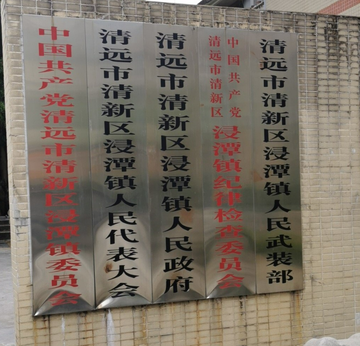 中国共产党清远市清新区浸潭镇委员会
清远市清新区浸潭镇人民代表大会
清远市清新区浸潭镇人民政府
中国共产党
清远市清新区
浸潭镇纪律检查委员会
清远市清新区浸潭镇人民武装部